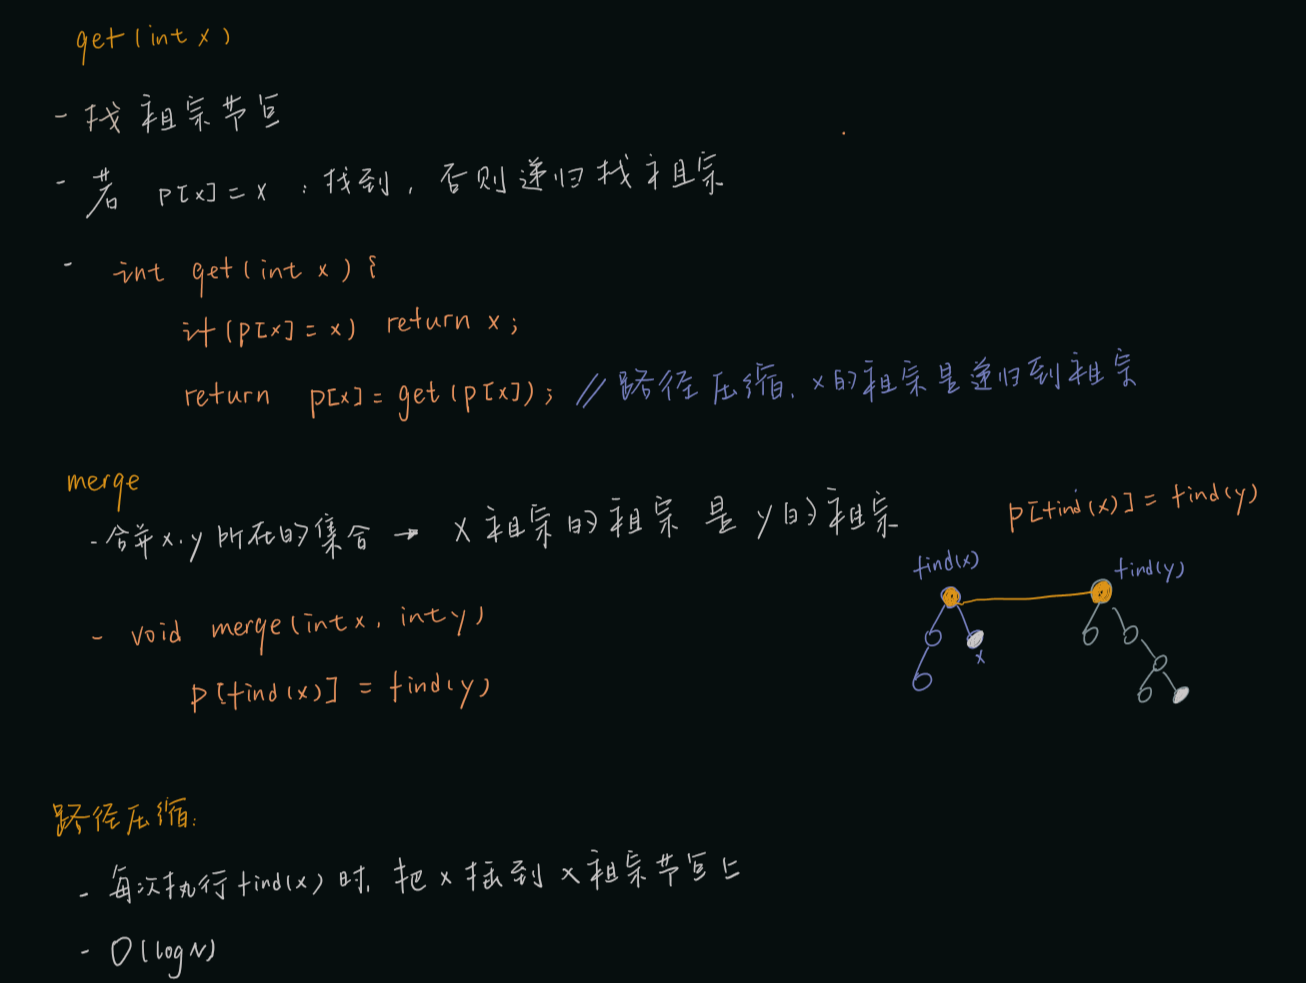 get(int x)
- 找祖宗节点
- 若 p[x]=x : 找到, 否则递归找祖宗
- int get(int x){
if(p[x]=x) return x;
return p[x]=get(p[x]); //路径压缩, x的祖宗是递归到祖宗
merge
- 合并x.y所在的集合 → x祖宗的祖宗是y的祖宗
p[find(x)] = find(y)
find(x)
find(y)
x
- void merge(int x, int y)
p[find(x)] = find(y)
路径压缩:
- 每次执行find(x)时, 把x插到x祖宗节点上
- O(logN)